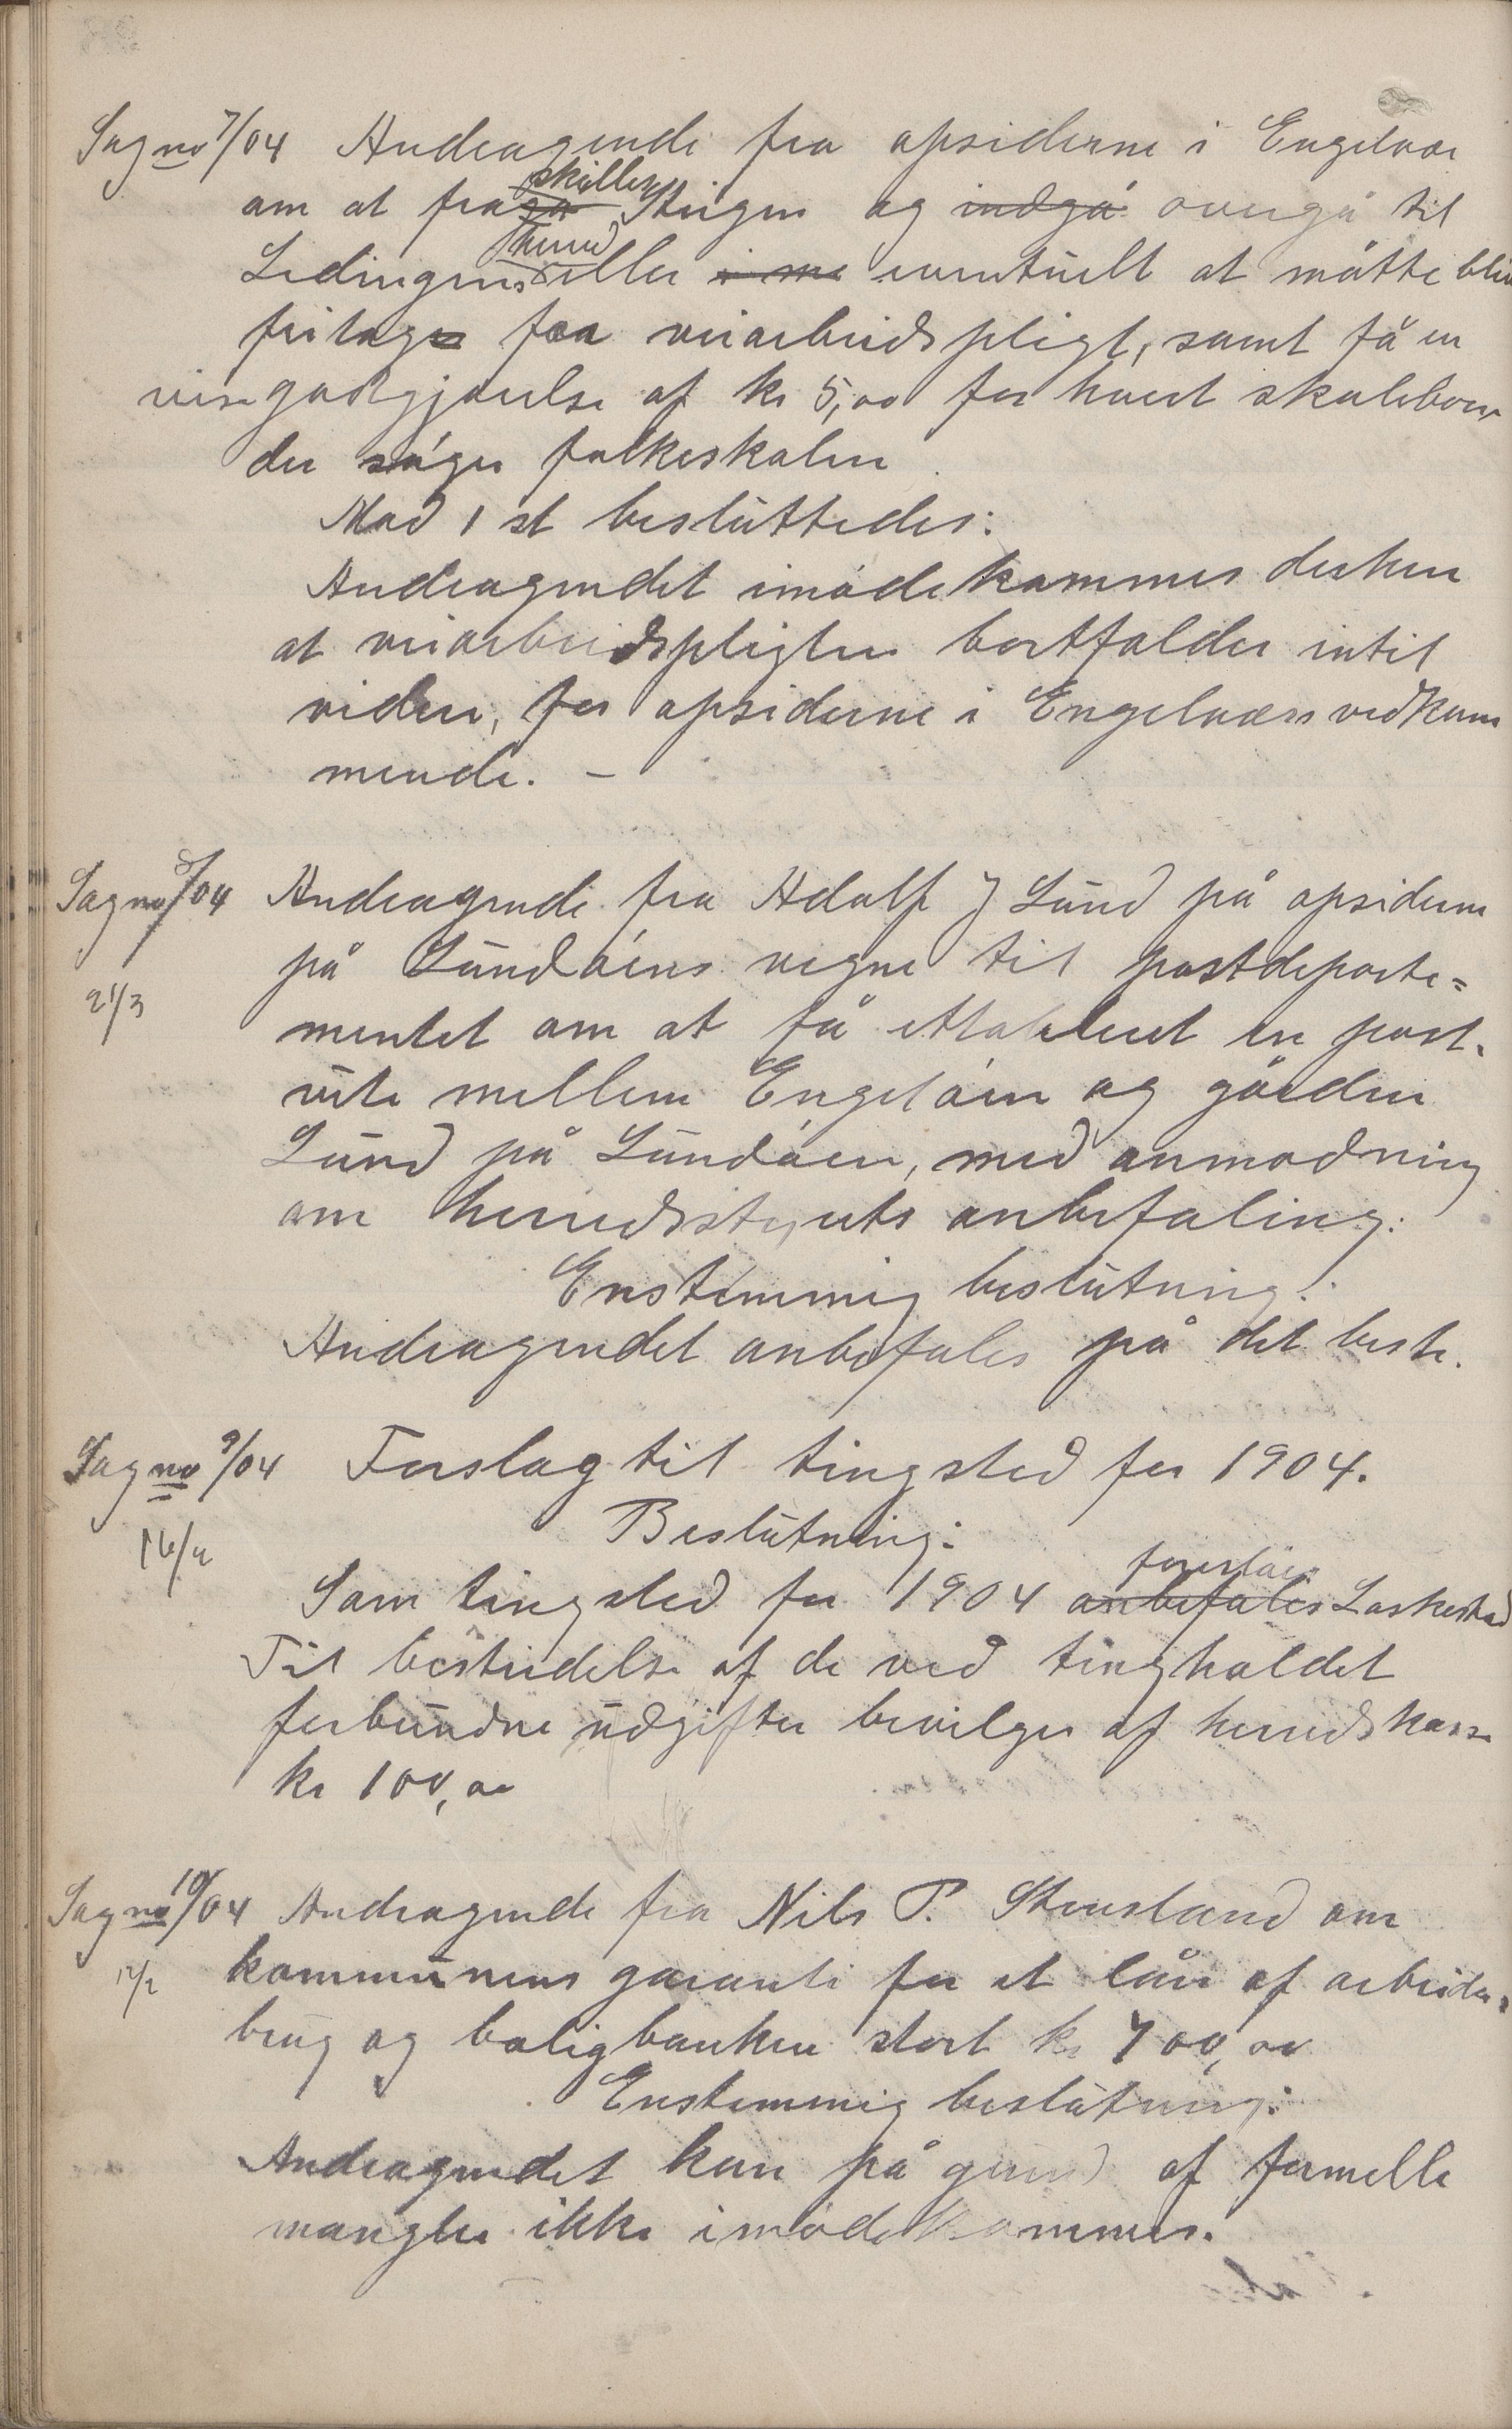 Sag no 7/04 Andragende fra opsiderne i Engelvær
om at fraskilles Steigen og indgå overgå til
Lødingens herred eller i me eventuelt at måtte bliv
fritages fra veiarbeidspligt, samt få en
vis godtgjørelse af kr 5,00 for hvert skolebarn
der søger folkeskolen
Mod 1 st besluttedes:
Andragendet imødekommes derhen
at veiarbeidspligten bortfalder intil
videre, for opsiderne i Engelværs vedkom
mende. –
Sag no 8/04 Andragende fra Adolf J Lund på opsiderne
på Lundøens vegne til postdeparte=
21/3
mentet om at få ettableret en post-
rute mellem Engeløen og gården
Lund på Lundøen, med anmodning
om herredsstyrets anbefaling:
Enstemmig beslutning:
Andragendet anbefales på det beste.
Sag no 9/04 Forslag til tingsted for 1904.
Beslutning:
16/4
foreslåes
Som tingsted for 1904 anbefales Laskestad
Til bestridelse af de ved tingholdet
forbundne udgifter bevilges af herredskasse
kr 100,00
Sag no 10/04 Andragende fra Nils P. Stensland om
kommunens garanti for et lån af arbeider=
12/2
brug og boligbanken stort kr 700,00
Enstemmig beslutning:
Andragendet kan på grund af formelle
mangler ikke imødekommes.